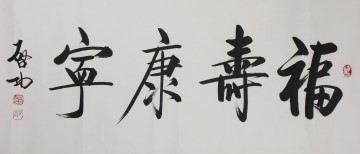 福壽康寧
啟功